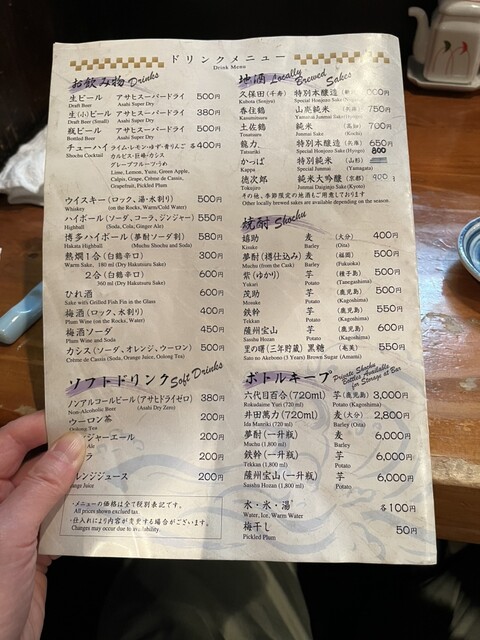 ドリンクメニュー
Drink Menu
お飲み物 Drinks
生ビール アサヒスーパードライ 500円
Draft Beer Asahi Super Dry
生(小)ビール アサヒスーパードライ 380円
Draft Beer (Small) Asahi Super Dry
瓶ビール アサヒスーパードライ 500円
Bottled Beer Asahi Super Dry
チューハイ ライム・レモン・ゆず・青りんご 各400円
Shochu Cocktail カルピス・巨峰・カシス
グレープフルーツ・うめ
Lime, Lemon, Yuzu, Green Apple,
Calpis, Grape, Crème de Cassis,
Grapefruit, Pickled Plum
ウイスキー(ロック、湯・水割り) 500円
Whiskey (on the Rocks, Warm/Cold Water)
ハイボール(ソーダ、コーラ、ジンジャー) 550円
Highball (Soda, Cola, Ginger Ale)
博多ハイボール(夢酎ソーダ割) 580円
Hakata Highball (Muchu Shochu and Soda)
熱燗1合(白鶴辛口) 300円
Warm Sake, 180 ml (Dry Hakutsuru Sake)
2合(白鶴辛口) 600円
360 ml (Dry Hakutsuru Sake)
ひれ酒 600円
Sake with Grilled Fish Fin in the Glass
梅酒(ロック、水割り) 400円
Plum Wine (on the Rocks, Water)
梅酒ソーダ 450円
Plum Wine and Soda
カシス(ソーダ、オレンジ、ウーロン) 500円
Crème de Cassis (Soda, Orange Juice, Oolong Tea)
ソフトドリンク Soft Drinks
ノンアルコールビール(アサヒドライゼロ) 380円
Non-Alcoholic Beer (Asahi Dry Zero)
ウーロン茶 200円
Oolong Tea
ジャーエール 200円
200円
レンジジュース 200円
nge Juice
・メニューの価格は全て税別表記です。
All prices shown exclud tax.
・仕入れにより内容が変更する場合がございます。
Changes may occur due to availability.
地酒 Locally Brewed Sakes
久保田(千寿) 特別本醸造
Kubota (Senjyu) Special Honjozo Sake
春住鶴 山廃純米 750円
Yamahai Junmai Sake
土佐鶴 純米 (高知) 700円
Tosatsuru Junmai Sake (Kochi)
龍力 特別本醸造 (兵庫) 650円
Tatsuriki Special Honjozo Sake (Hyogo) 800
かっぱ 特別純米 (山形)
Kappa Special Junmai Sake (Yamagata)
徳次郎 純米大吟醸 (京都) 900円
Tokujiro Junmai Daiginjo Sake (Kyoto)
その他、季節限定の地酒もご用意しております
Other locally brewed sakes are available depending on the season.
焼酎 Shochu
嬉助 麦 (大分) 400円
Kisuke Barley (Oita)
夢酎(樽仕込み) 麦 (福岡) 500円
Muchu (from the Cask) Barley (Fukuoka)
紫(ゆかり) 芋 (種子島) 500円
Yukari Potato (Tanegashima)
茂助 芋 (鹿児島) 500円
Mosuke Potato (Kagoshima)
鉄幹 芋 (鹿児島) 550円
Tekkan Potato (Kagoshima)
薩州宝山 芋 (鹿児島) 600円
Sasshu Hozan Potato (Kagoshima)
里の曙(三年貯蔵) 黒糖 (奄美) 550円
Sato no Akebono (3 Years) Brown Sugar (Amami)
ボトルキープ Private Shochu Bottles Available for Storage at Bar
六代目百合(720ml) 芋(鹿児島) 3,000円
Rokudaime Yuri (720 ml) Potato (Kagoshima)
井田萬力(720ml) 麦(大分) 2,800円
Ida Manriki (720 ml) Barley (Oita)
夢酎(一升瓶) 麦 6,000円
Muchu (1,800 ml) Barley
鉄幹(一升瓶) 芋 6,000円
Tekkan (1,800 ml) Potato
薩州宝山(一升瓶) 芋 6,000円
Sasshu Hozan (1,800 ml) Potato
水・氷・湯 各100円
Water, Ice, Warm Water
梅干し 50円
Pickled Plum